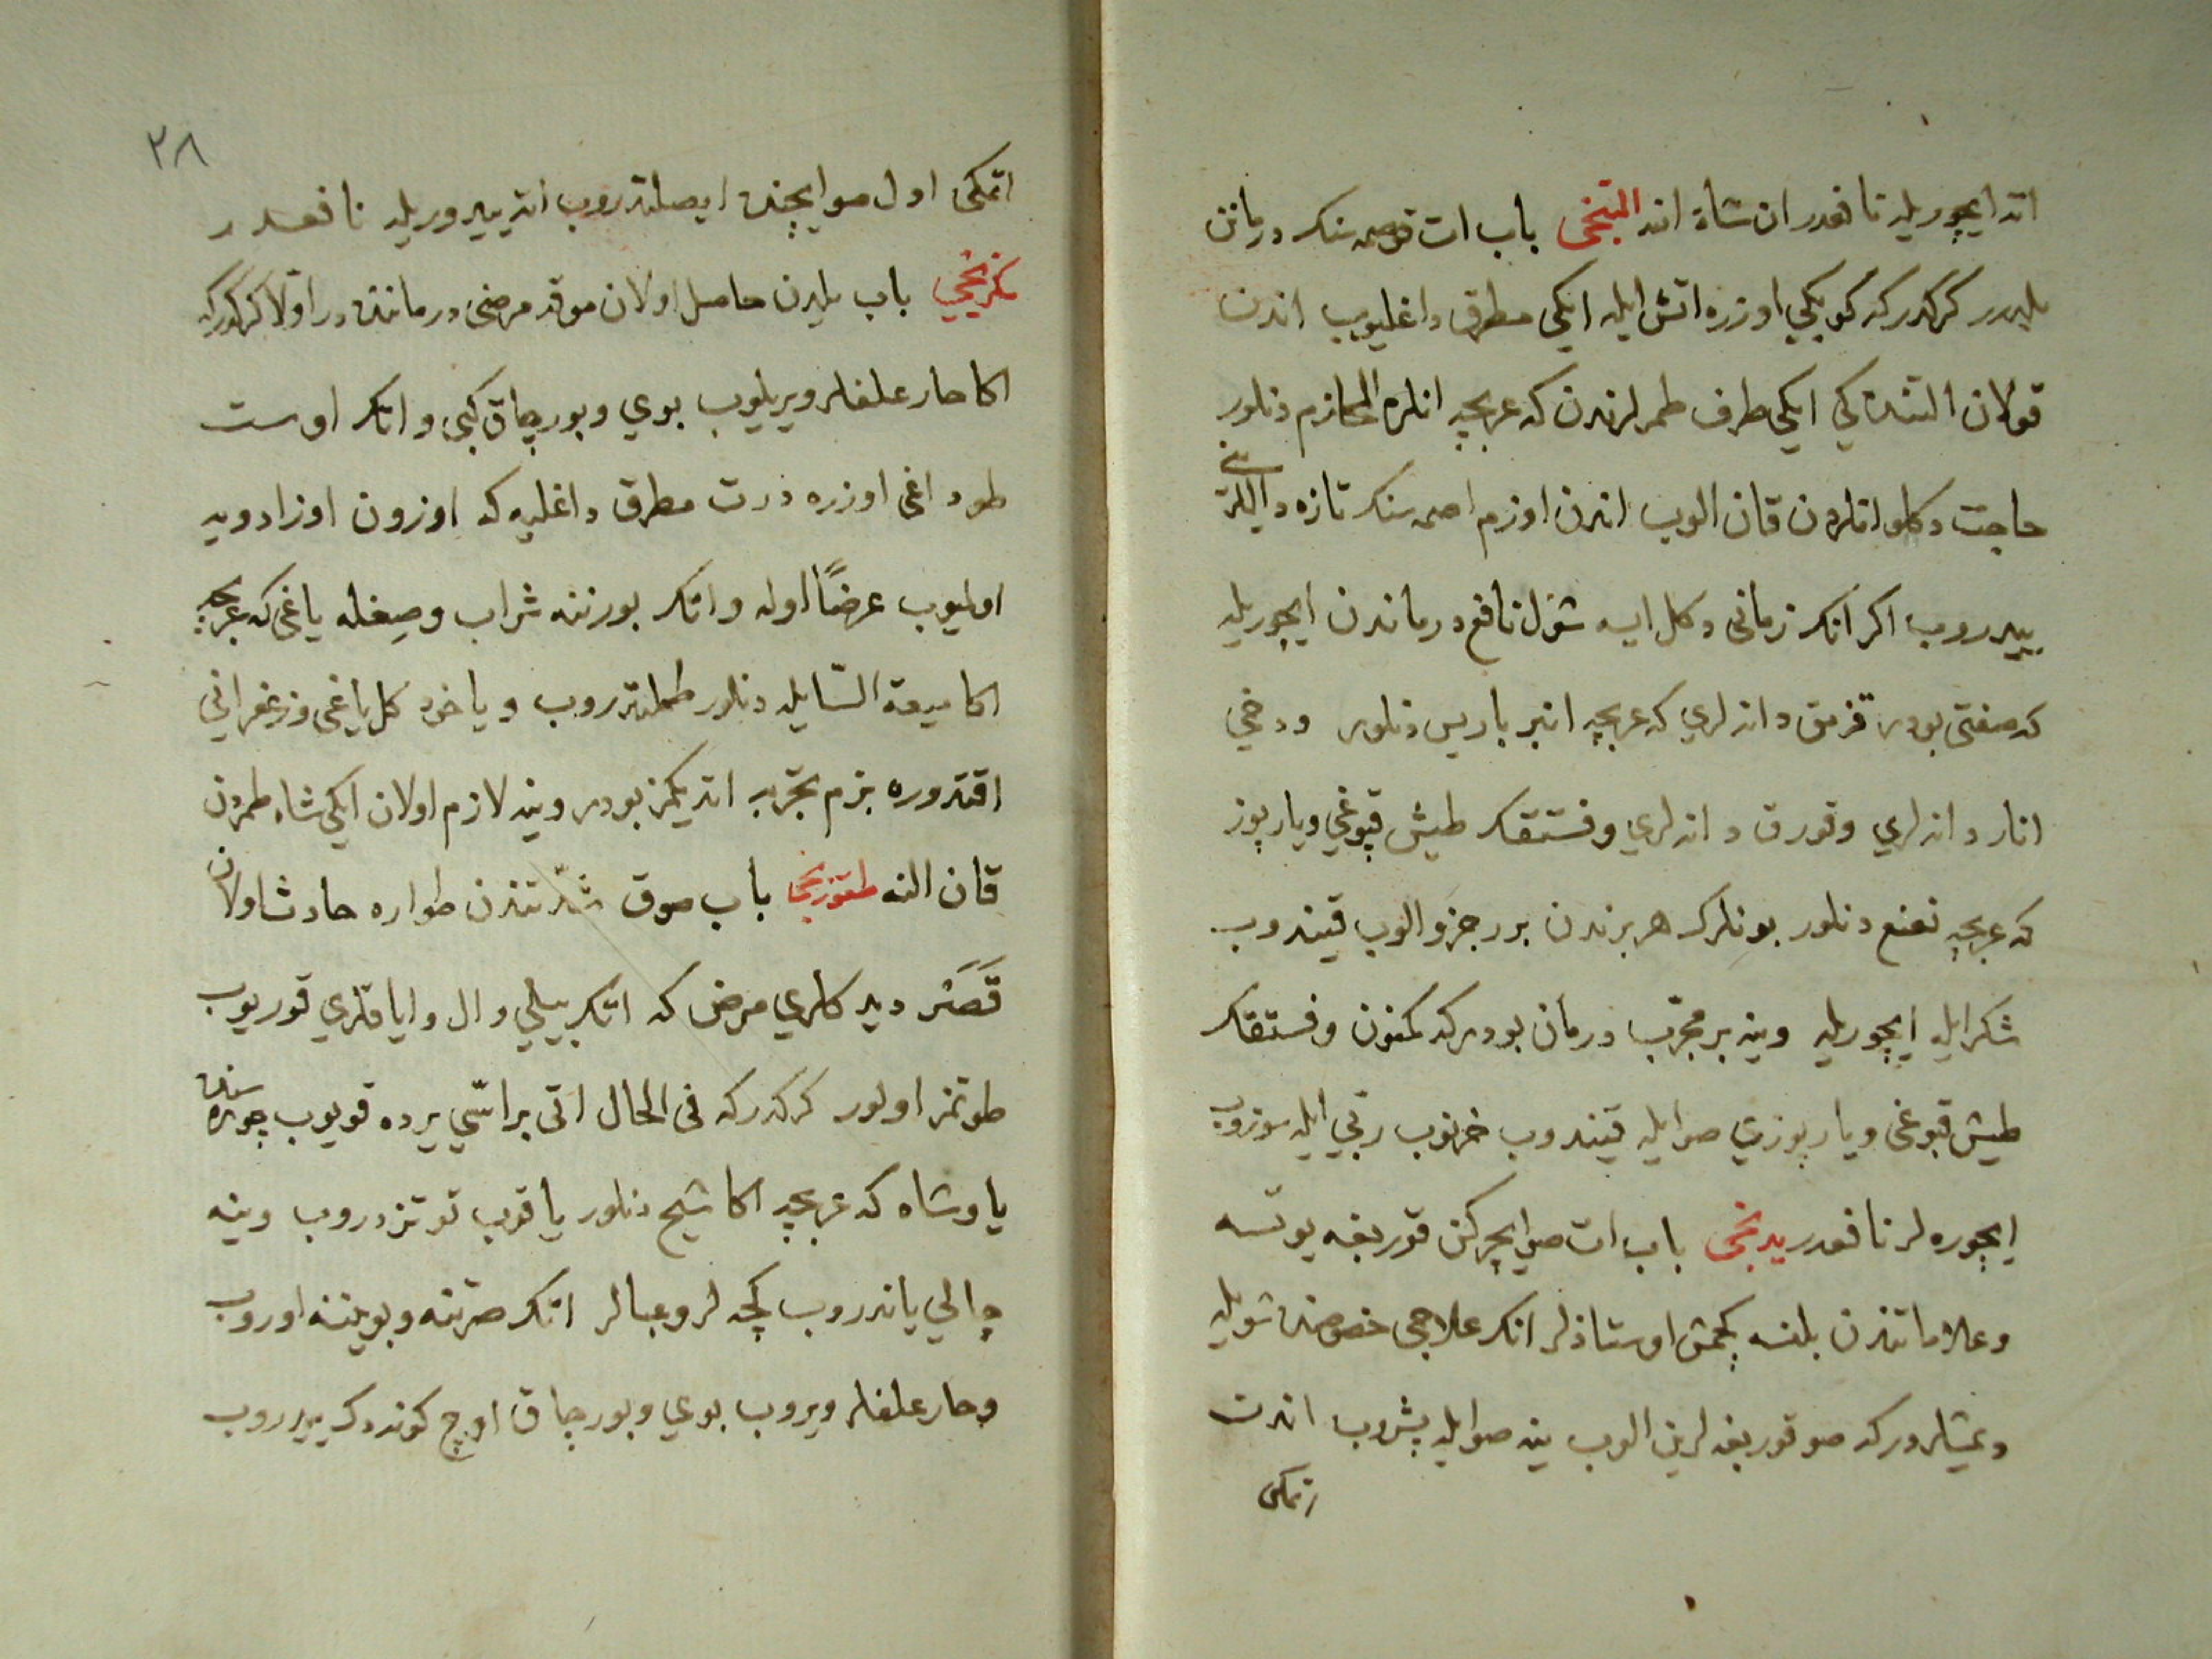 اته ايچوريله نافعدر ان شاء الله التنجى باب ات قوصمه سنك درمانن
بلدرر كركدركه كوبكي اوزره اتش ايله ايكي مطرق داغليوب اندن
قولان التنده كي ايكي طرف طمرلرندن كه عربجه انلره المحازم دنلور
حاجت دكلو انلردن قان الوب اندن اوزم اصمه سنك تازه
ييدروب اكر انك زمانى دكل ايسه شول نافع درماندن ايچوريله
كه صفتى بودر قزمق دانه لري كه عربجه انبر باريس دنلور ودخي
انار دانه لري وقورق دانه لري وفستقك طيش قپوغي ويارپوز
كه عربجه نعنع دنلور بونلرك هر برندن برر جزو الوب قيندوب
شكر ايله ايچوريله وينه بر مجرّب درمان بودركه كمنون وفستقك
طيش قپوغى ويارپوزي صو ايله قيندوب خرنوب ربي ايله سوزوب
ايچوره لر نافعدر يدنجى باب ات صو ايچركن قوربغه يوتسه
وعلاماتندن بلنسه كچمش اوستاذلر انك علاجى خصوصنده شويله
دعشلردركه صو قوربغه لرين الوب ينه صو ايله پشروب اندن
اتمكى
٣٨
اتمكى اول صو ايچنده ايصلندروب اته ييدوريله نافعدر
سكزنجي باب يلدن حاصل اولان صوقه مرضى درماننده در اولا كركدركه
اكا حار علفلر ويريليوب بوي وبورچاق كبي وانك اوست
طوداغى اوزره درت مطرق داغليه كه اوزون اوزادويه
اولميوب عرضًا اوله وانك بورننه شراب وصغله ياغى كه عربجه
اكا ميعة السّايله دنلور طملتدروب وياخود كل ياغى وزعفرانى
اقتدوره بزم تجربه اتديكمز بودر وينه لازم اولان ايكي شاه طمردن
قان النه طقوزنجى باب صوق شدّتندن طواره حادث اولان
قَصَر ديدكلري مرض كه اتك بيلي وال واياقلري قوريوب
طوتمز اولور كركدركه فى الحال اتى بر اسّي يرده قويوب چوره سنده
ياوشان كه عربجه اكا شيح دنلور ياقوب توتزدروب وينه
چالي ياندروب كچه لر وعبالر اتك صرتنه وبويننه اوروب
وحار علفلر ويروب بوي وبورچاق اوچ كوندك ييدروب